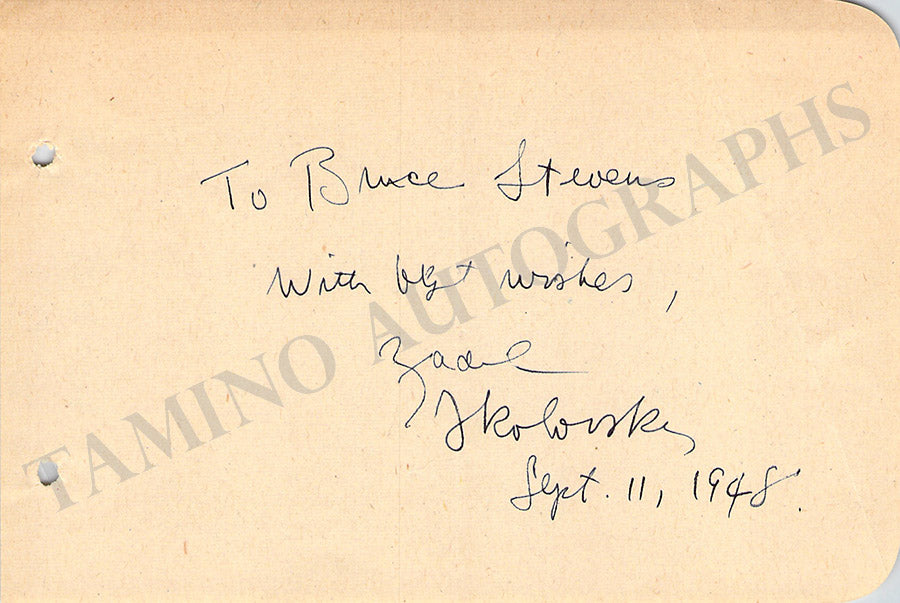 To Bruce Stevens
With best wishes,
Zadel
Skolovsky
Sept. 11, 1948.
TAMINO AUTOGRAPHS